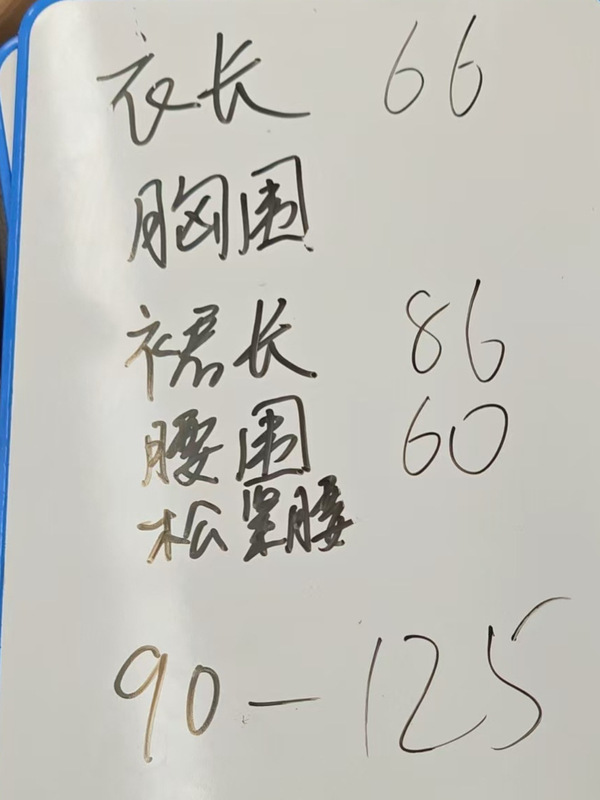 衣长 66
胸围
裙长 86
腰围 60
松紧腰
90-125